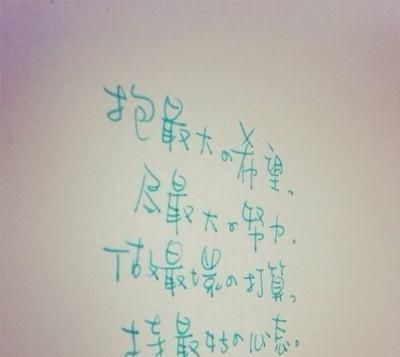 抱最大の希望、
尽最大の努力、
做最壞の打算、
持最好の心态。